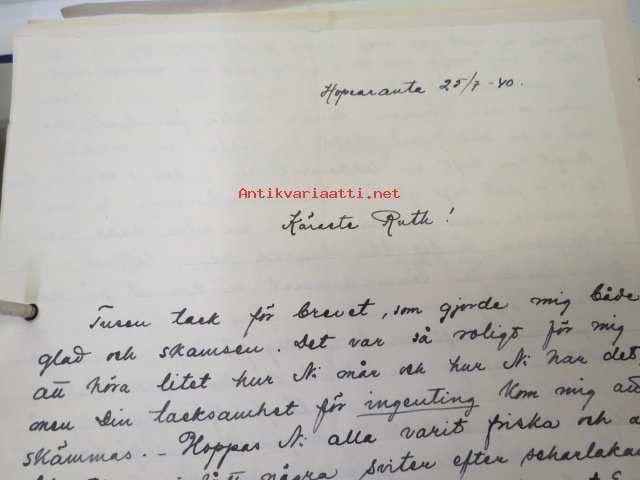 Hopearanta 25/7-40.
Antikvariaatti.net
Käraste Ruth!
Tusen tack för brevet, som gjorde mig både
glad och skamsen. Det var så roligt för mig
att höra litet hur Ni mår och hur Ni har det
men Din tacksamhet för ingenting kom mig att
skämmas. - Hoppas Ni alla varit friska och
några sviter efter scharlakan